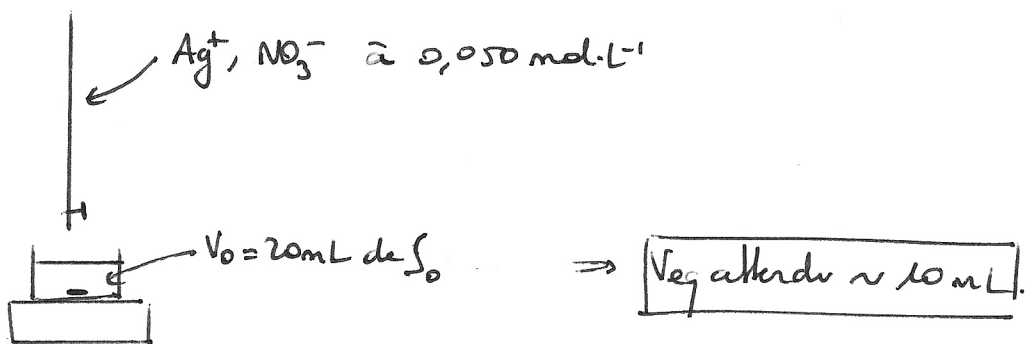 Ag⁺, NO₃⁻ à 0,050 mol.L⁻¹
V₀ = 20mL de S₀ ⇒ Veq attendu ~ 10 mL.